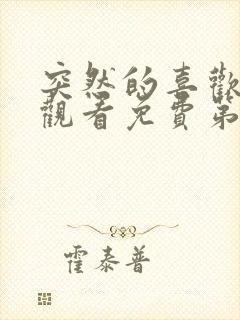 突然的喜歡
觀看免費第
霍泰普